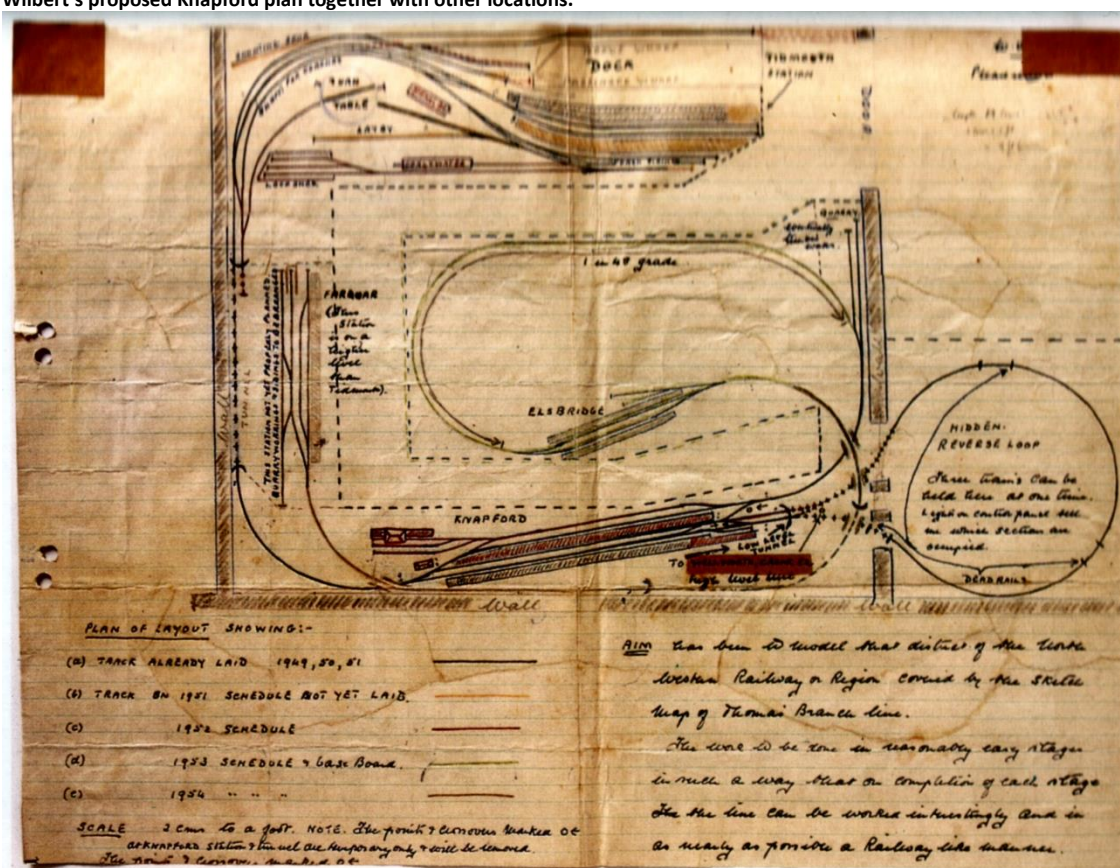 Wilbert's proposed Knapford plan together with other locations.
DOCK
TIDMOUTH
STATION
TURN
TABLE
LAYBY
LOCO SHED
DOOR
QUARRY
1 in 48 grade
FARQUHAR
(This
Station
is on a
higher
level
than
Tidmouth).
THIS STATION NOT YET PROPERLY PLANNED
Wall
TUNNEL
wall
ELSBRIDGE
HIDDEN
REVERSE LOOP
Three trains can be
held here at one time.
Lights on control panel tell
in which section are
occupied.
DEAD RAILS
KNAPFORD
LOW LEVEL
TUNNEL
TO
high level line
wall
wall
PLAN OF LAYOUT SHOWING:-
(a) TRACK ALREADY LAID 1949, 50, 51
(b) TRACK ON 1951 SCHEDULE NOT YET LAID.
(c) 1952 SCHEDULE
(d) 1953 SCHEDULE & base Board.
(e) 1954 " " "
SCALE 3 cms to a foot. NOTE. The points & crossovers marked
at KNAPFORD station & tunnel are temporary only & will be removed.
The points & crossovers marked
AIM has been to model that district of the North
Western Railway or Region covered by the sketch
map of Thomas Branch line.
The work to be done in reasonably easy stages
in such a way that on completion of each stage
the line can be worked interestingly and in
as nearly as possible a Railway like manner.